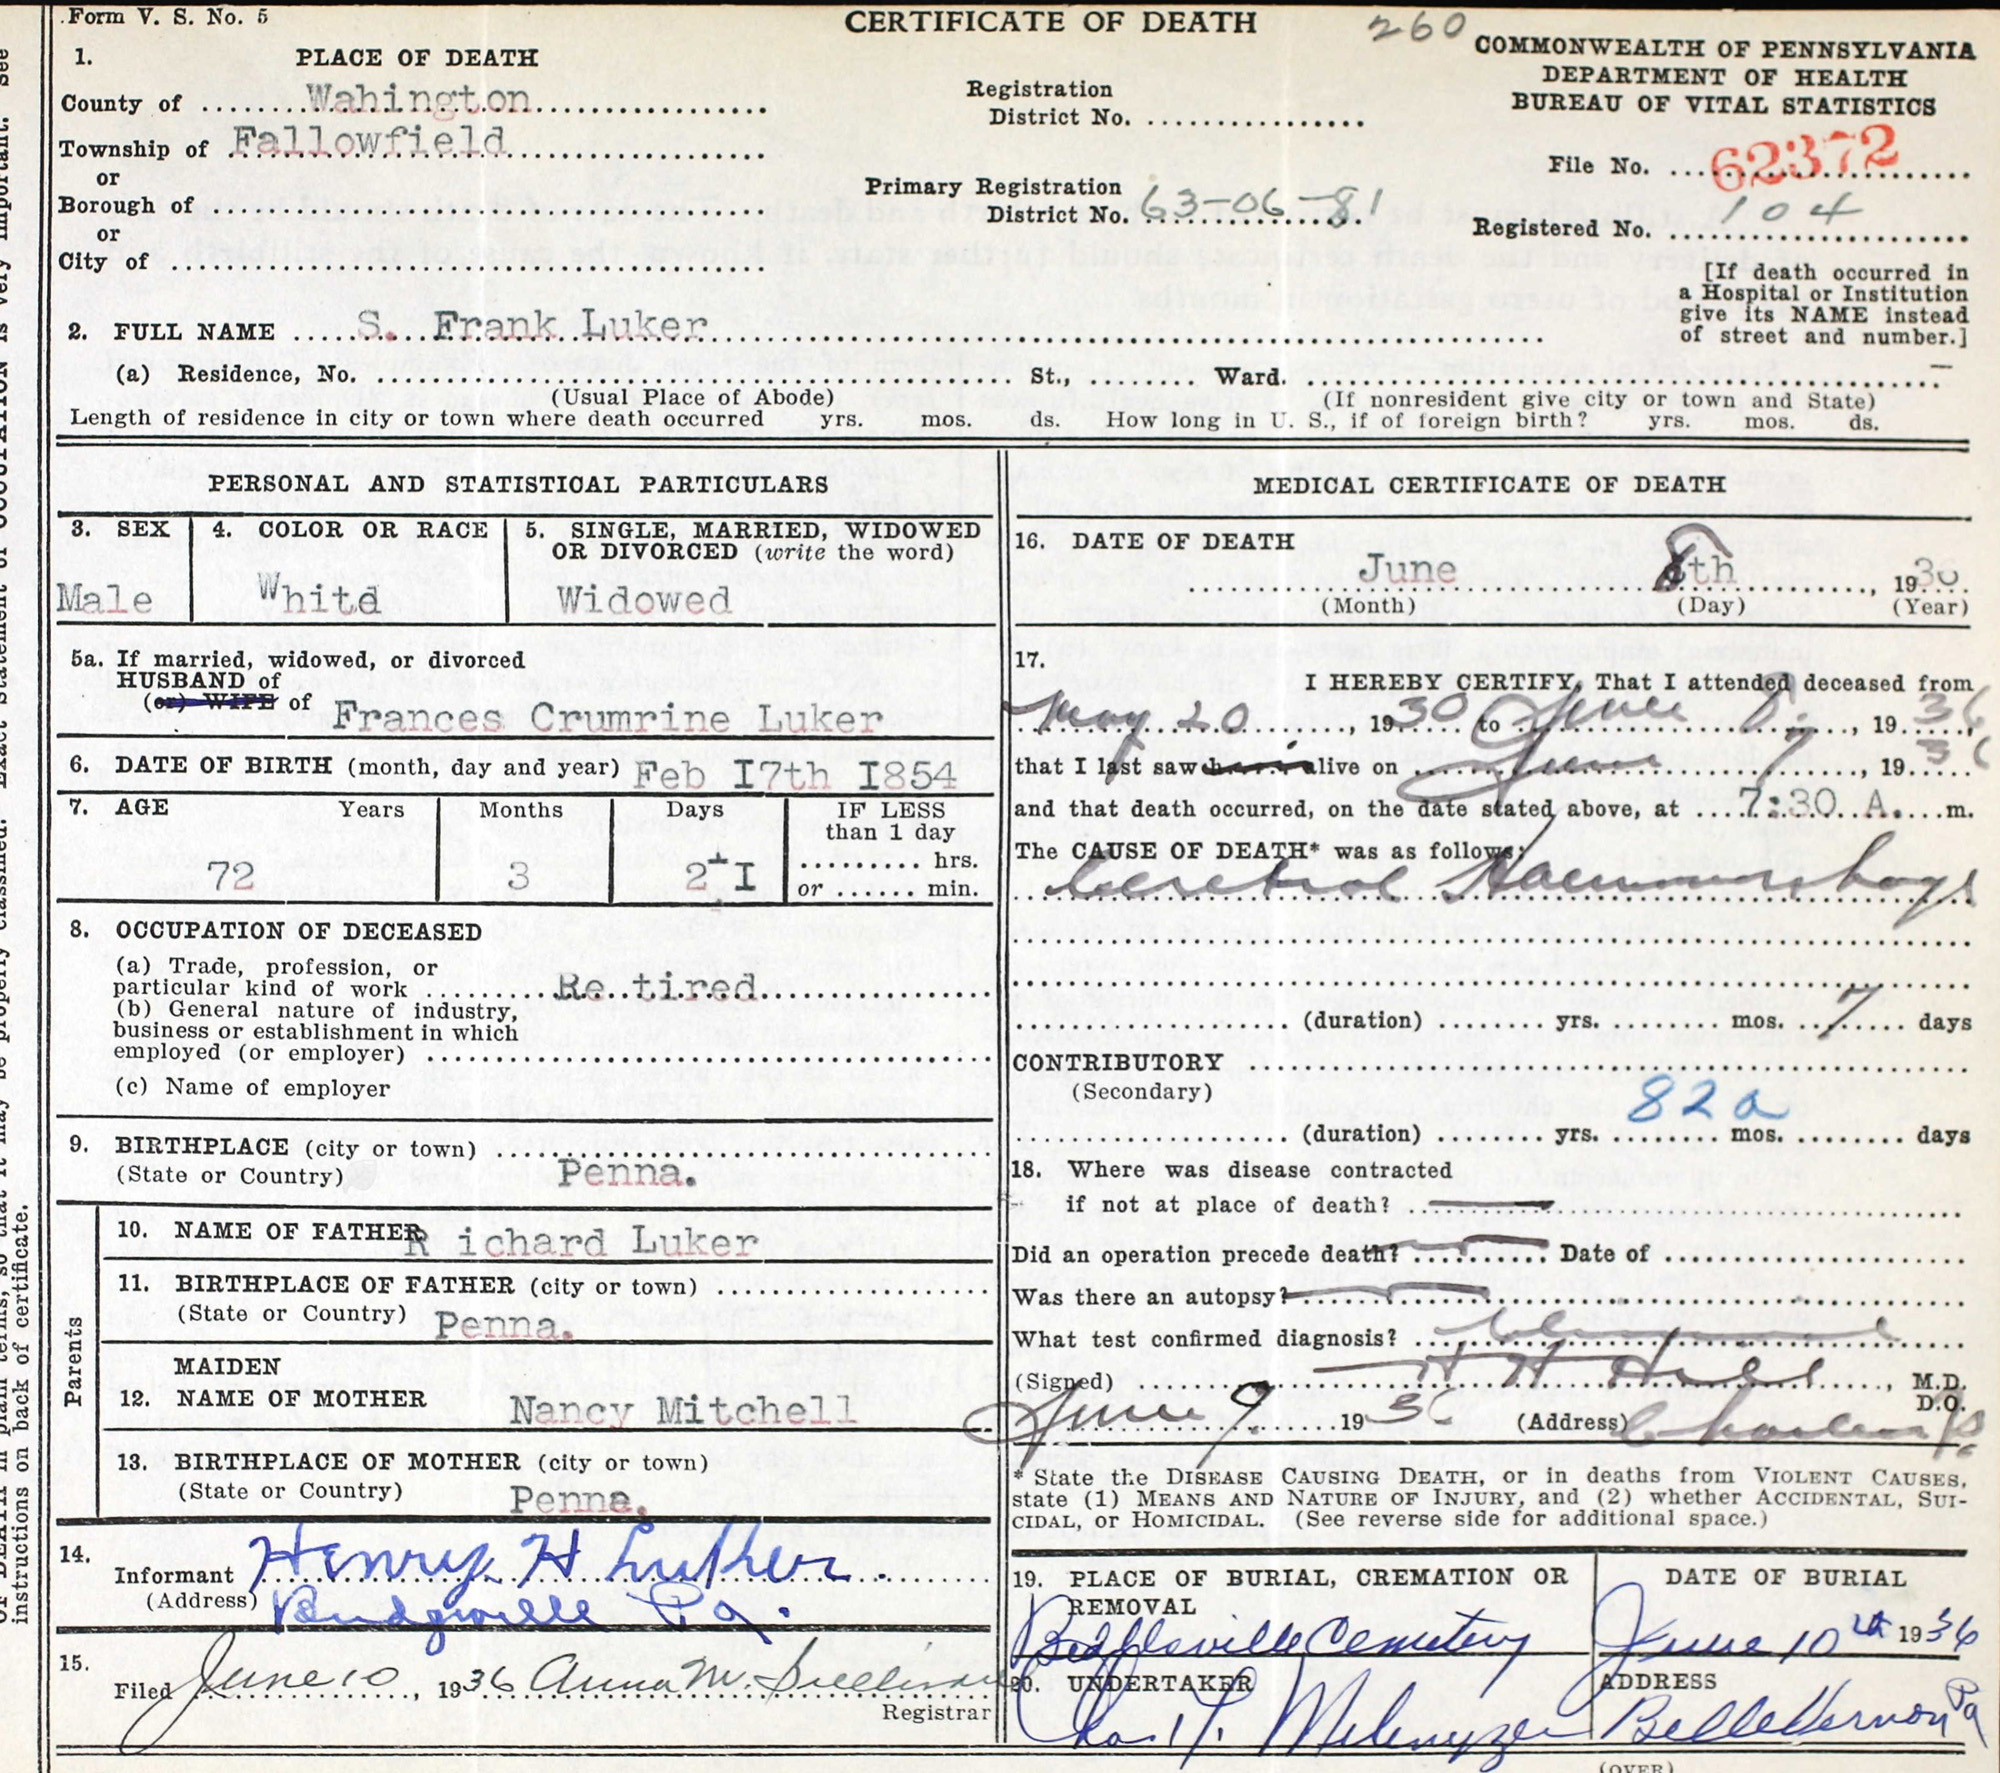 Form V. S. No. 5
CERTIFICATE OF DEATH
260
COMMONWEALTH OF PENNSYLVANIA
DEPARTMENT OF HEALTH
BUREAU OF VITAL STATISTICS
1. PLACE OF DEATH
County of Wahington
Township of Fallowfield
or
Borough of
or
City of
Registration
District No.
Primary Registration
District No. 63-06-81
File No. 62372
Registered No. 104
[If death occurred in
a Hospital or Institution
give its NAME instead
of street and number.]
2. FULL NAME S. Frank Luker
(a) Residence, No. St., Ward.
(Usual Place of Abode) (If nonresident give city or town and State)
Length of residence in city or town where death occurred yrs. mos. ds. How long in U. S., if of foreign birth? yrs. mos. ds.
PERSONAL AND STATISTICAL PARTICULARS
3. SEX
Male
4. COLOR OR RACE
White
5. SINGLE, MARRIED, WIDOWED
OR DIVORCED (write the word)
Widowed
5a. If married, widowed, or divorced
HUSBAND of
(or) WIFE of Frances Crumrine Luker
6. DATE OF BIRTH (month, day and year) Feb I7th I854
7. AGE Years Months Days IF LESS
than 1 day
hrs.
72 3 2I or min.
8. OCCUPATION OF DECEASED
(a) Trade, profession, or
particular kind of work Re tired
(b) General nature of industry,
business or establishment in which
employed (or employer)
(c) Name of employer
9. BIRTHPLACE (city or town)
(State or Country) Penna.
Parents
10. NAME OF FATHER R ichard Luker
11. BIRTHPLACE OF FATHER (city or town)
(State or Country) Penna.
MAIDEN
12. NAME OF MOTHER Nancy Mitchell
13. BIRTHPLACE OF MOTHER (city or town)
(State or Country) Penna.
14.
Informant Henry H Luker.
(Address) Bridgeville Pa.
15.
Filed June 10, 1936 Anna M.
Registrar
MEDICAL CERTIFICATE OF DEATH
16. DATE OF DEATH
June 8th, 1936
(Month) (Day) (Year)
17.
I HEREBY CERTIFY, That I attended deceased from
May 20, 1930 to June 8, 1936
that I last saw him alive on June 8, 1936
and that death occurred, on the date stated above, at 7:30 A. m.
The CAUSE OF DEATH* was as follows:
Cerebral Haemorrhage
(duration) yrs. mos. 7 days
CONTRIBUTORY
(Secondary)
82a
(duration) yrs. mos. days
18. Where was disease contracted
if not at place of death?
Did an operation precede death? Date of
Was there an autopsy?
What test confirmed diagnosis? Clinical
(Signed) H H Hill, M.D.
D.O.
June 9, 1936 (Address) Charleroi Pa
* State the DISEASE CAUSING DEATH, or in deaths from VIOLENT CAUSES,
state (1) MEANS AND NATURE OF INJURY, and (2) whether ACCIDENTAL, SUI-
CIDAL, or HOMICIDAL. (See reverse side for additional space.)
19. PLACE OF BURIAL, CREMATION OR
REMOVAL
Beallsville Cemetery
DATE OF BURIAL
June 10th 1936
20. UNDERTAKER
Chas. F. Melenyzer
ADDRESS
Belle Vernon Pa
(OVER)
instructions on back of certificate.